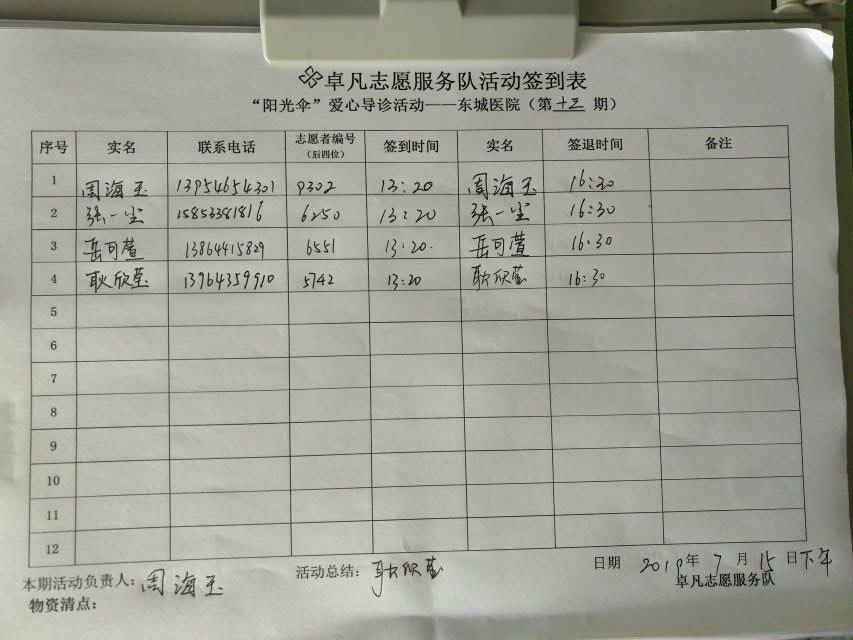 卓凡志愿服务队活动签到表
“阳光伞”爱心导诊活动——东城医院（第 十三 期）
序号 实名 联系电话 志愿者编号（后四位） 签到时间 实名 签退时间 备注
1 周海玉 13954654301 0302 13:20 周海玉 16:30
2 张一尘 15853381816 6250 13:20 张一尘 16:30
3 岳可萱 13864415829 6551 13:20. 岳可萱 16:30
4 耿欣莹 13964359910 5742 13:20 耿欣莹 16:30
5
6
7
8
9
10
11
12
本期活动负责人：周海玉 活动总结：耿欣莹 日期 2019年 7 月 15 日下午
物资清点： 卓凡志愿服务队